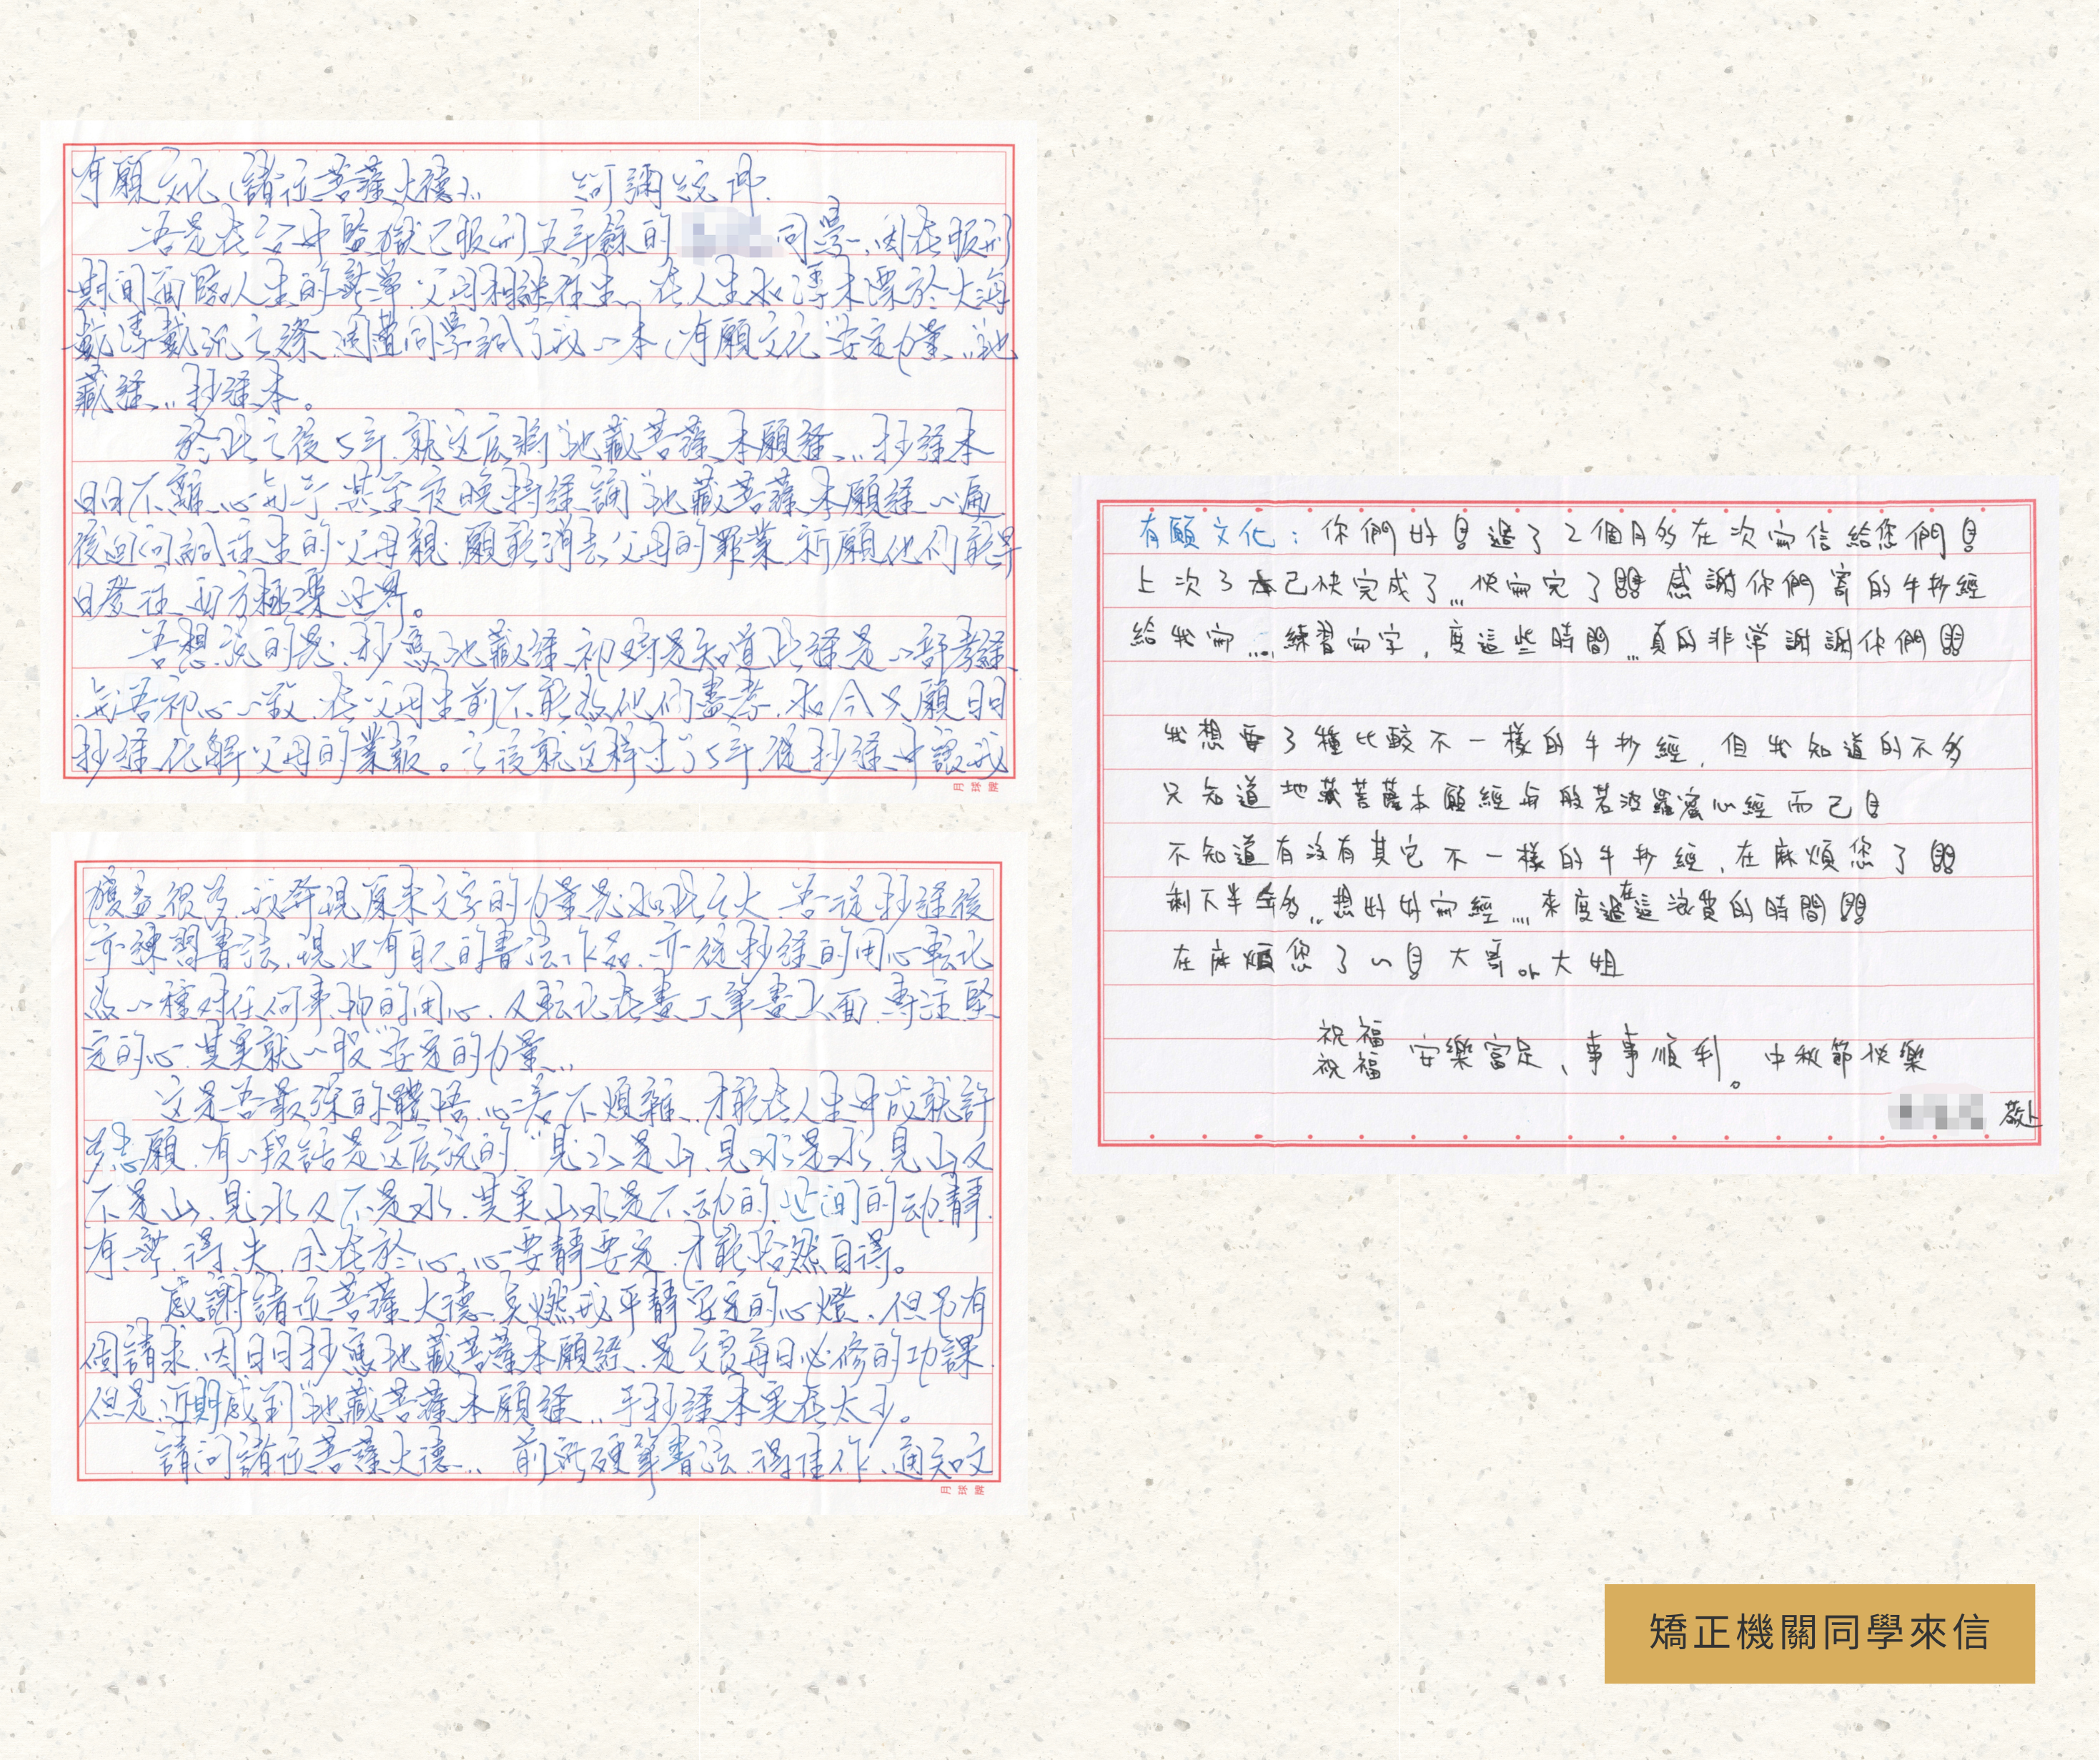 有願文化(諸位菩薩大德).. 阿彌陀佛.
吾是在台中監獄已服刑五年餘的 同學、因在服刑
期間面臨人生的無常.父母相繼往生、在人生如浮木漂於大海
載浮載沉之際、周遭同學讓了我一本(有願文化"安定力量"..地
藏經..抄經本。
於此之後5年.就这麼將"地藏菩薩本願經"..抄經本
日日不離.心有于.甚至夜晚持經誦"地藏菩薩本願經一遍
後迴向給往生的父母親.願能消去父母的罪業.祈願他们能早
日登往西方極樂世界。
吾想說的是.抄寫地藏經.初時是知道此經是一部孝經
.與吾初心一致.在父母生前不能為他们盡孝.如今只願日日
抄經.化解父母的業報。之後就这樣过了5年.從抄經中讓我
獲益很多.我發現原來文字的力量是如此之大.吾從抄經後
亦練習書法.現也有自己的書法作品.亦從抄經的用心転化
為一種对任何事物的用心.又転化在畫丁筆畫上面.專注堅
定的心.其实就一股"安定的力量"..
这是吾最深的體悟.心若不煩雜.才能在人生中成就許
多志願.有一段話是这麼說的."見山是山.見水是水.見山又
不是山.見水又不是水.其实山水是不动的.世间的动.靜.
有.無.得.失.全在於心.心要靜要定.才能怡然自得。
感謝諸位菩薩大德.點燃我平靜安定的心燈.但另有
個請求.因日日抄寫地藏菩薩本願經.是文良每日必修的功課.
但是.近期感到"地藏菩薩本願經"..手抄經本实在太少。
請问諸位菩薩大德.. 前所硬筆書法.得佳作.通知文
月球牌
月球牌
有願文化:你們好 過了2個月多在次寫信給您們
上次3本己快完成了...快寫完了!! 感謝你們寄的手抄經
給我寫....練習寫字,度這些時間...真的非常謝謝你們!!
我想要3種比較不一樣的手抄經,但我知道的不多
只知道地藏菩薩本願經與般若波羅蜜心經而己
不知道有沒有其它不一樣的手抄經,在麻煩您了!!
剩下半年多..想好好寫經....來度過在這浪費的時間!!
在麻煩您了~ 大哥or大姐
祝福
祝福 安樂富足、事事順利。中秋節快樂
敬上
矯正機關同學來信